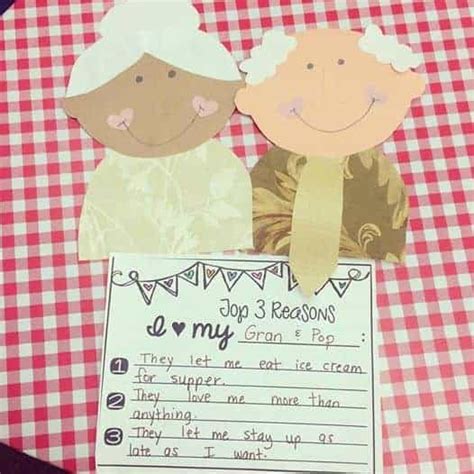 Top 3 Reasons
I ♥ my Gran & Pop :
1 They let me eat ice cream
for supper.
2 They love me more than
anything.
3 They let me stay up as
late as I want.